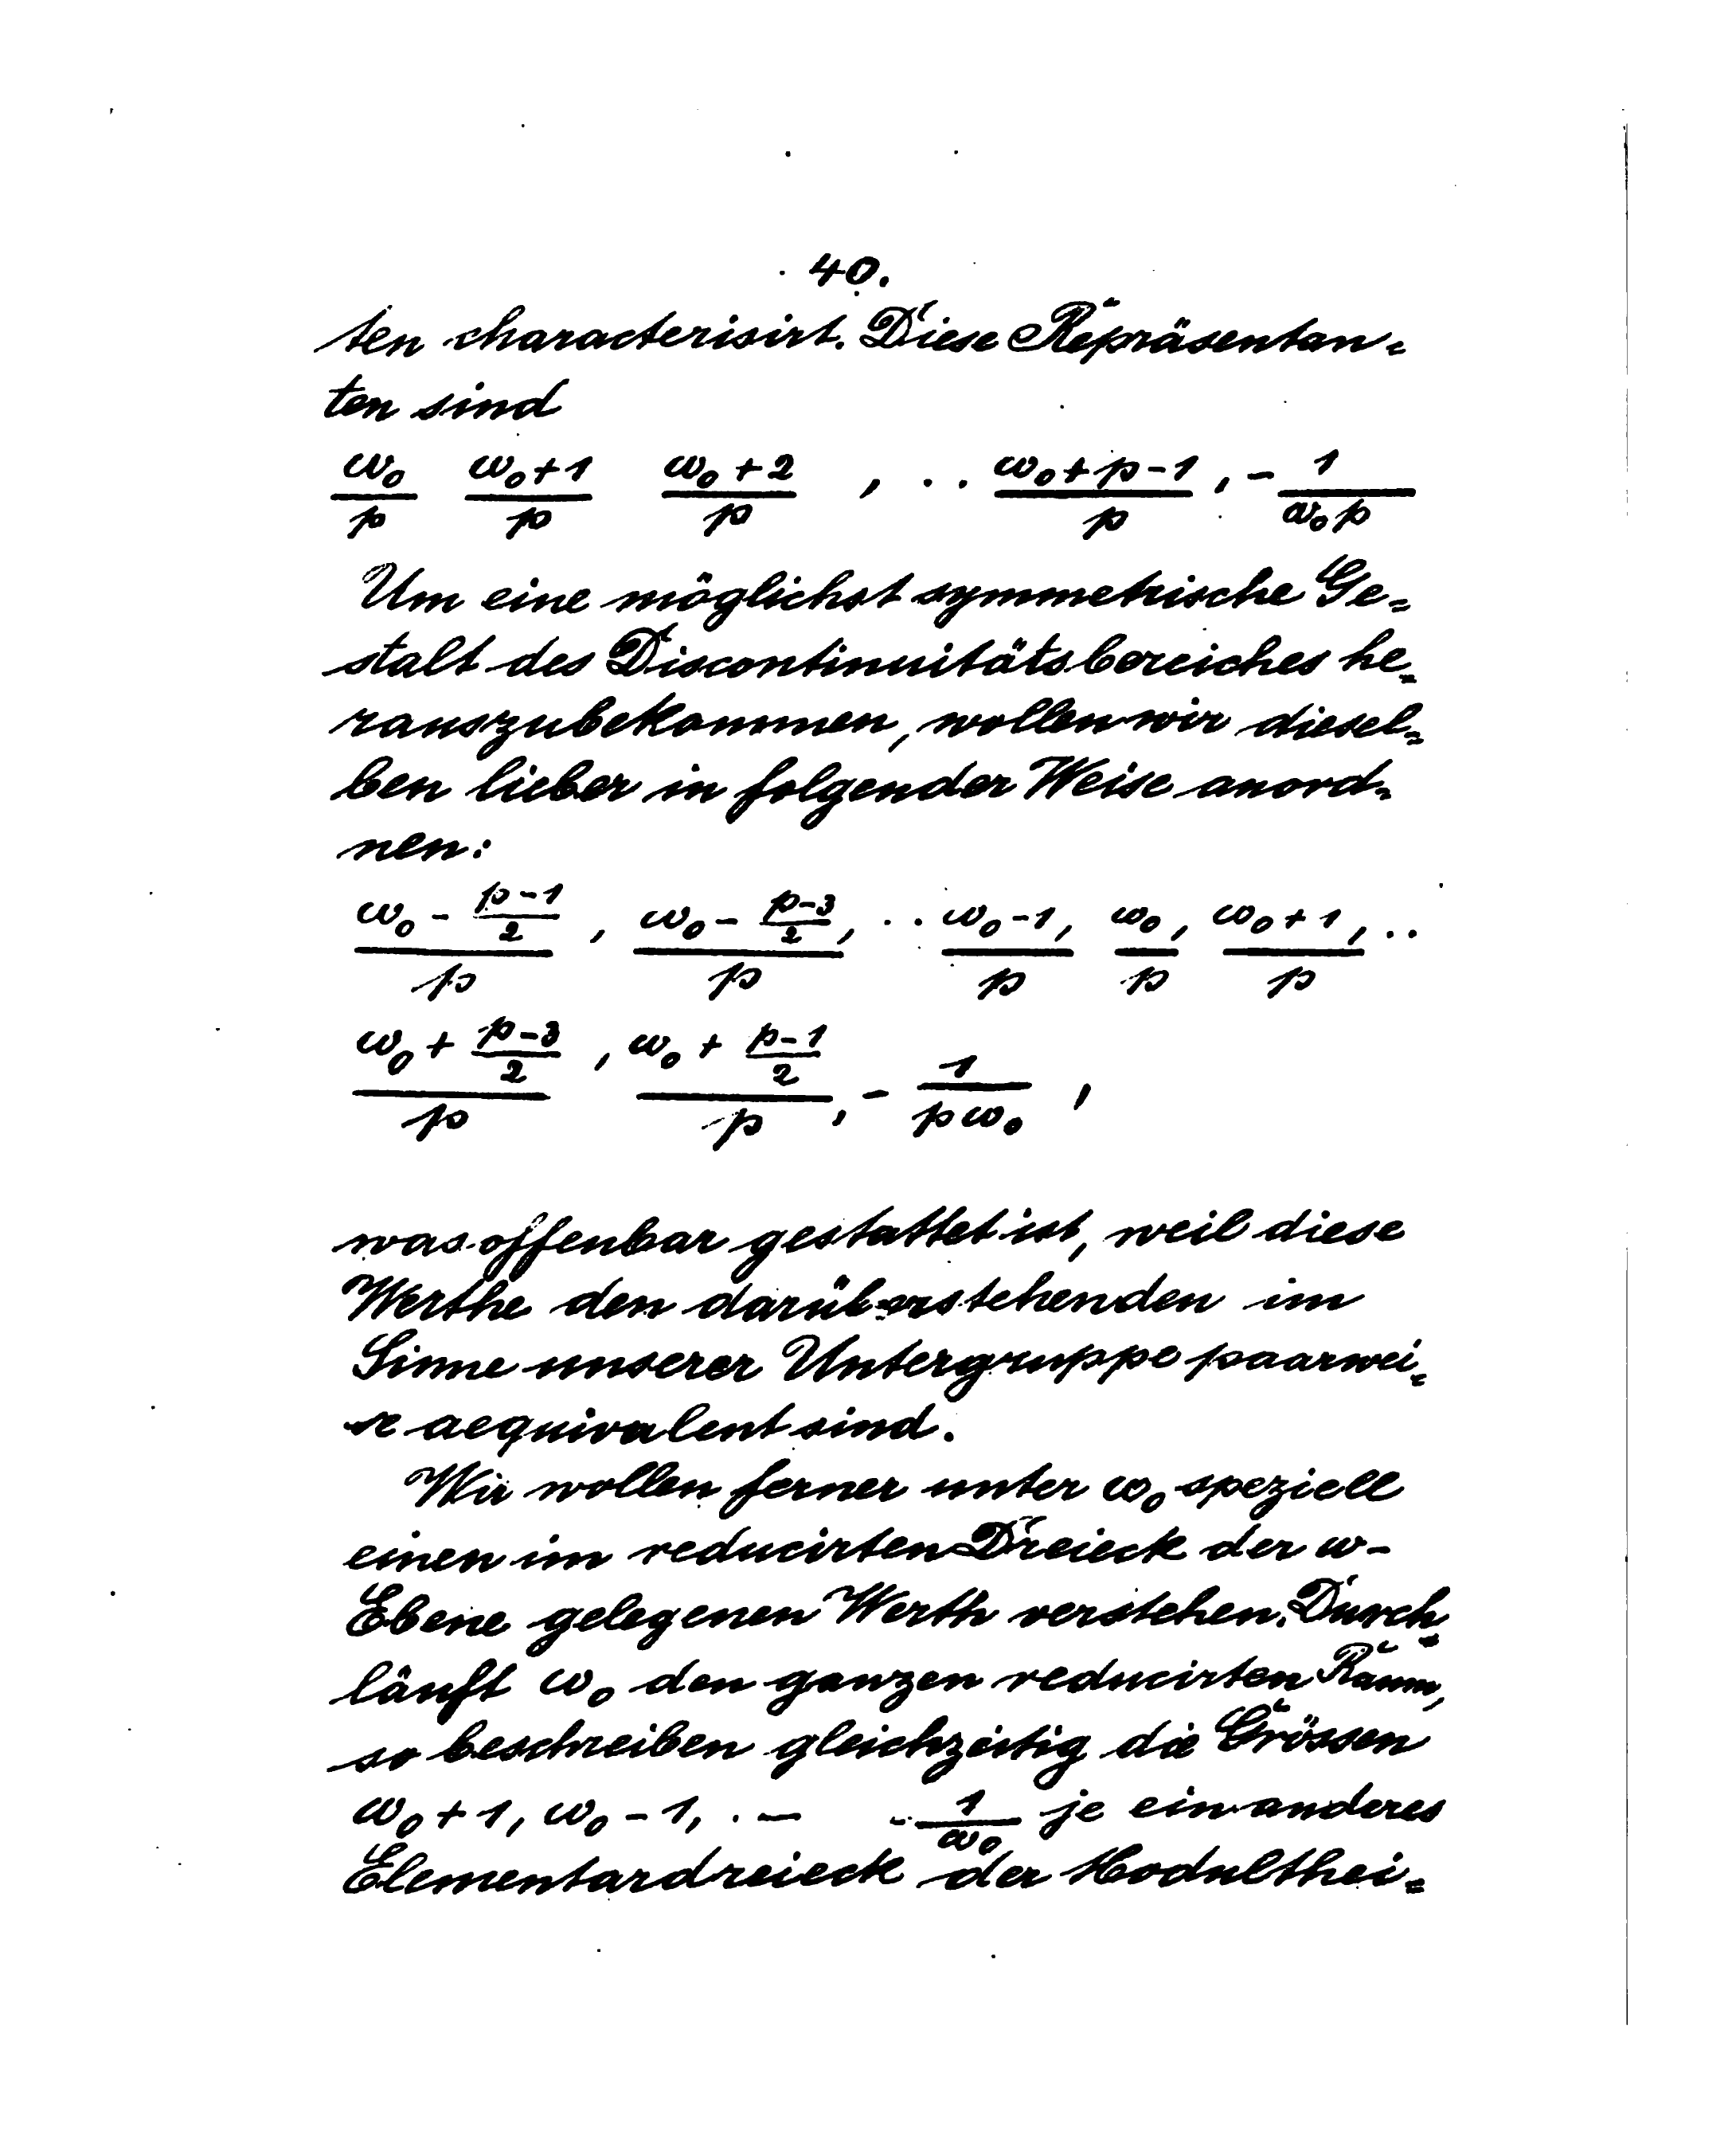 40.
ten characterisirt. Diese Repräsentan-
ten sind
\frac{ω_0}{p} \frac{ω_0+1}{p} \frac{ω_0+2}{p} , .. \frac{ω_0+p-1}{p} , -\frac{1}{ω_0 p}
Um eine möglichst symmetrische Ge-
stalt des Discontinuitätsbereiches he-
rauszubekommen, wollen wir diesel-
ben lieber in folgender Weise anord-
nen:
\frac{ω_0 - \frac{p-1}{2}}{p} , \frac{ω_0 - \frac{p-3}{2}}{p} , .. \frac{ω_0-1}{p} , \frac{ω_0}{p} , \frac{ω_0+1}{p} , ..
\frac{ω_0 + \frac{p-3}{2}}{p} , \frac{ω_0 + \frac{p-1}{2}}{p} , -\frac{1}{pω_0} ,
was offenbar gestattet ist, weil diese
Werthe den darüberstehenden im
Sinne unserer Untergruppe paarwei-
se aequivalent sind.
Wir wollen ferner unter ω_0 speziell
einen im reducirten Dreieck der ω-
Ebene gelegenen Werth verstehen. Durch-
läuft ω_0 den ganzen reducirten Raum,
so beschreiben gleichzeitig die Grössen
ω_0+1, ω_0-1, . — -\frac{1}{ω_0} je ein anderes
Elementardreieck der Modulthei-